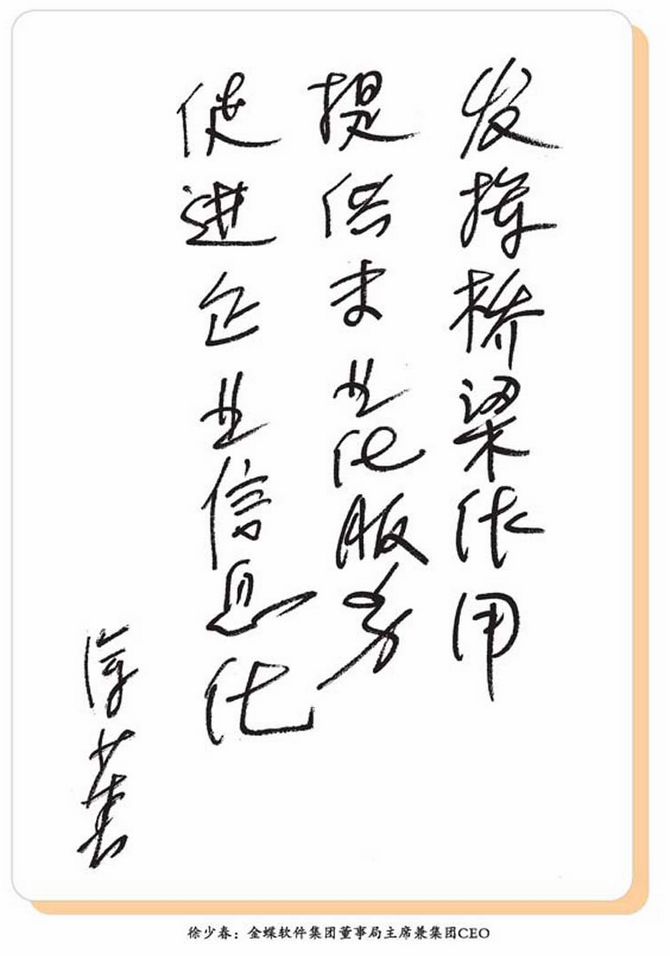 发挥桥梁作用
提供专业化服务
促进企业信息化
徐少春
徐少春：金蝶软件集团董事局主席兼集团CEO